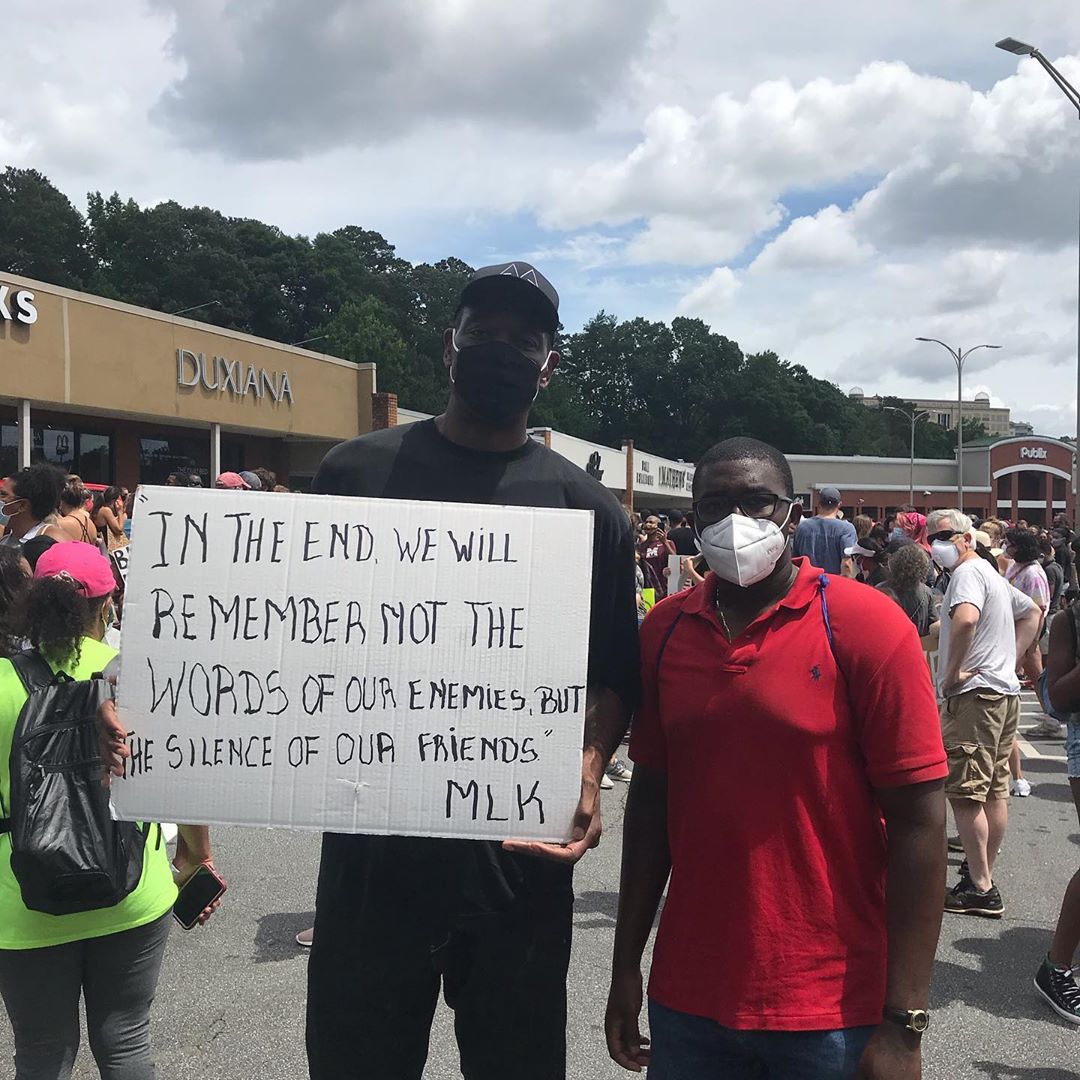 KS
DUXIANA
Publix
"IN THE END, WE WILL
REMEMBER NOT THE
WORDS OF OUR ENEMIES, BUT
THE SILENCE OF OUR FRIENDS"
MLK